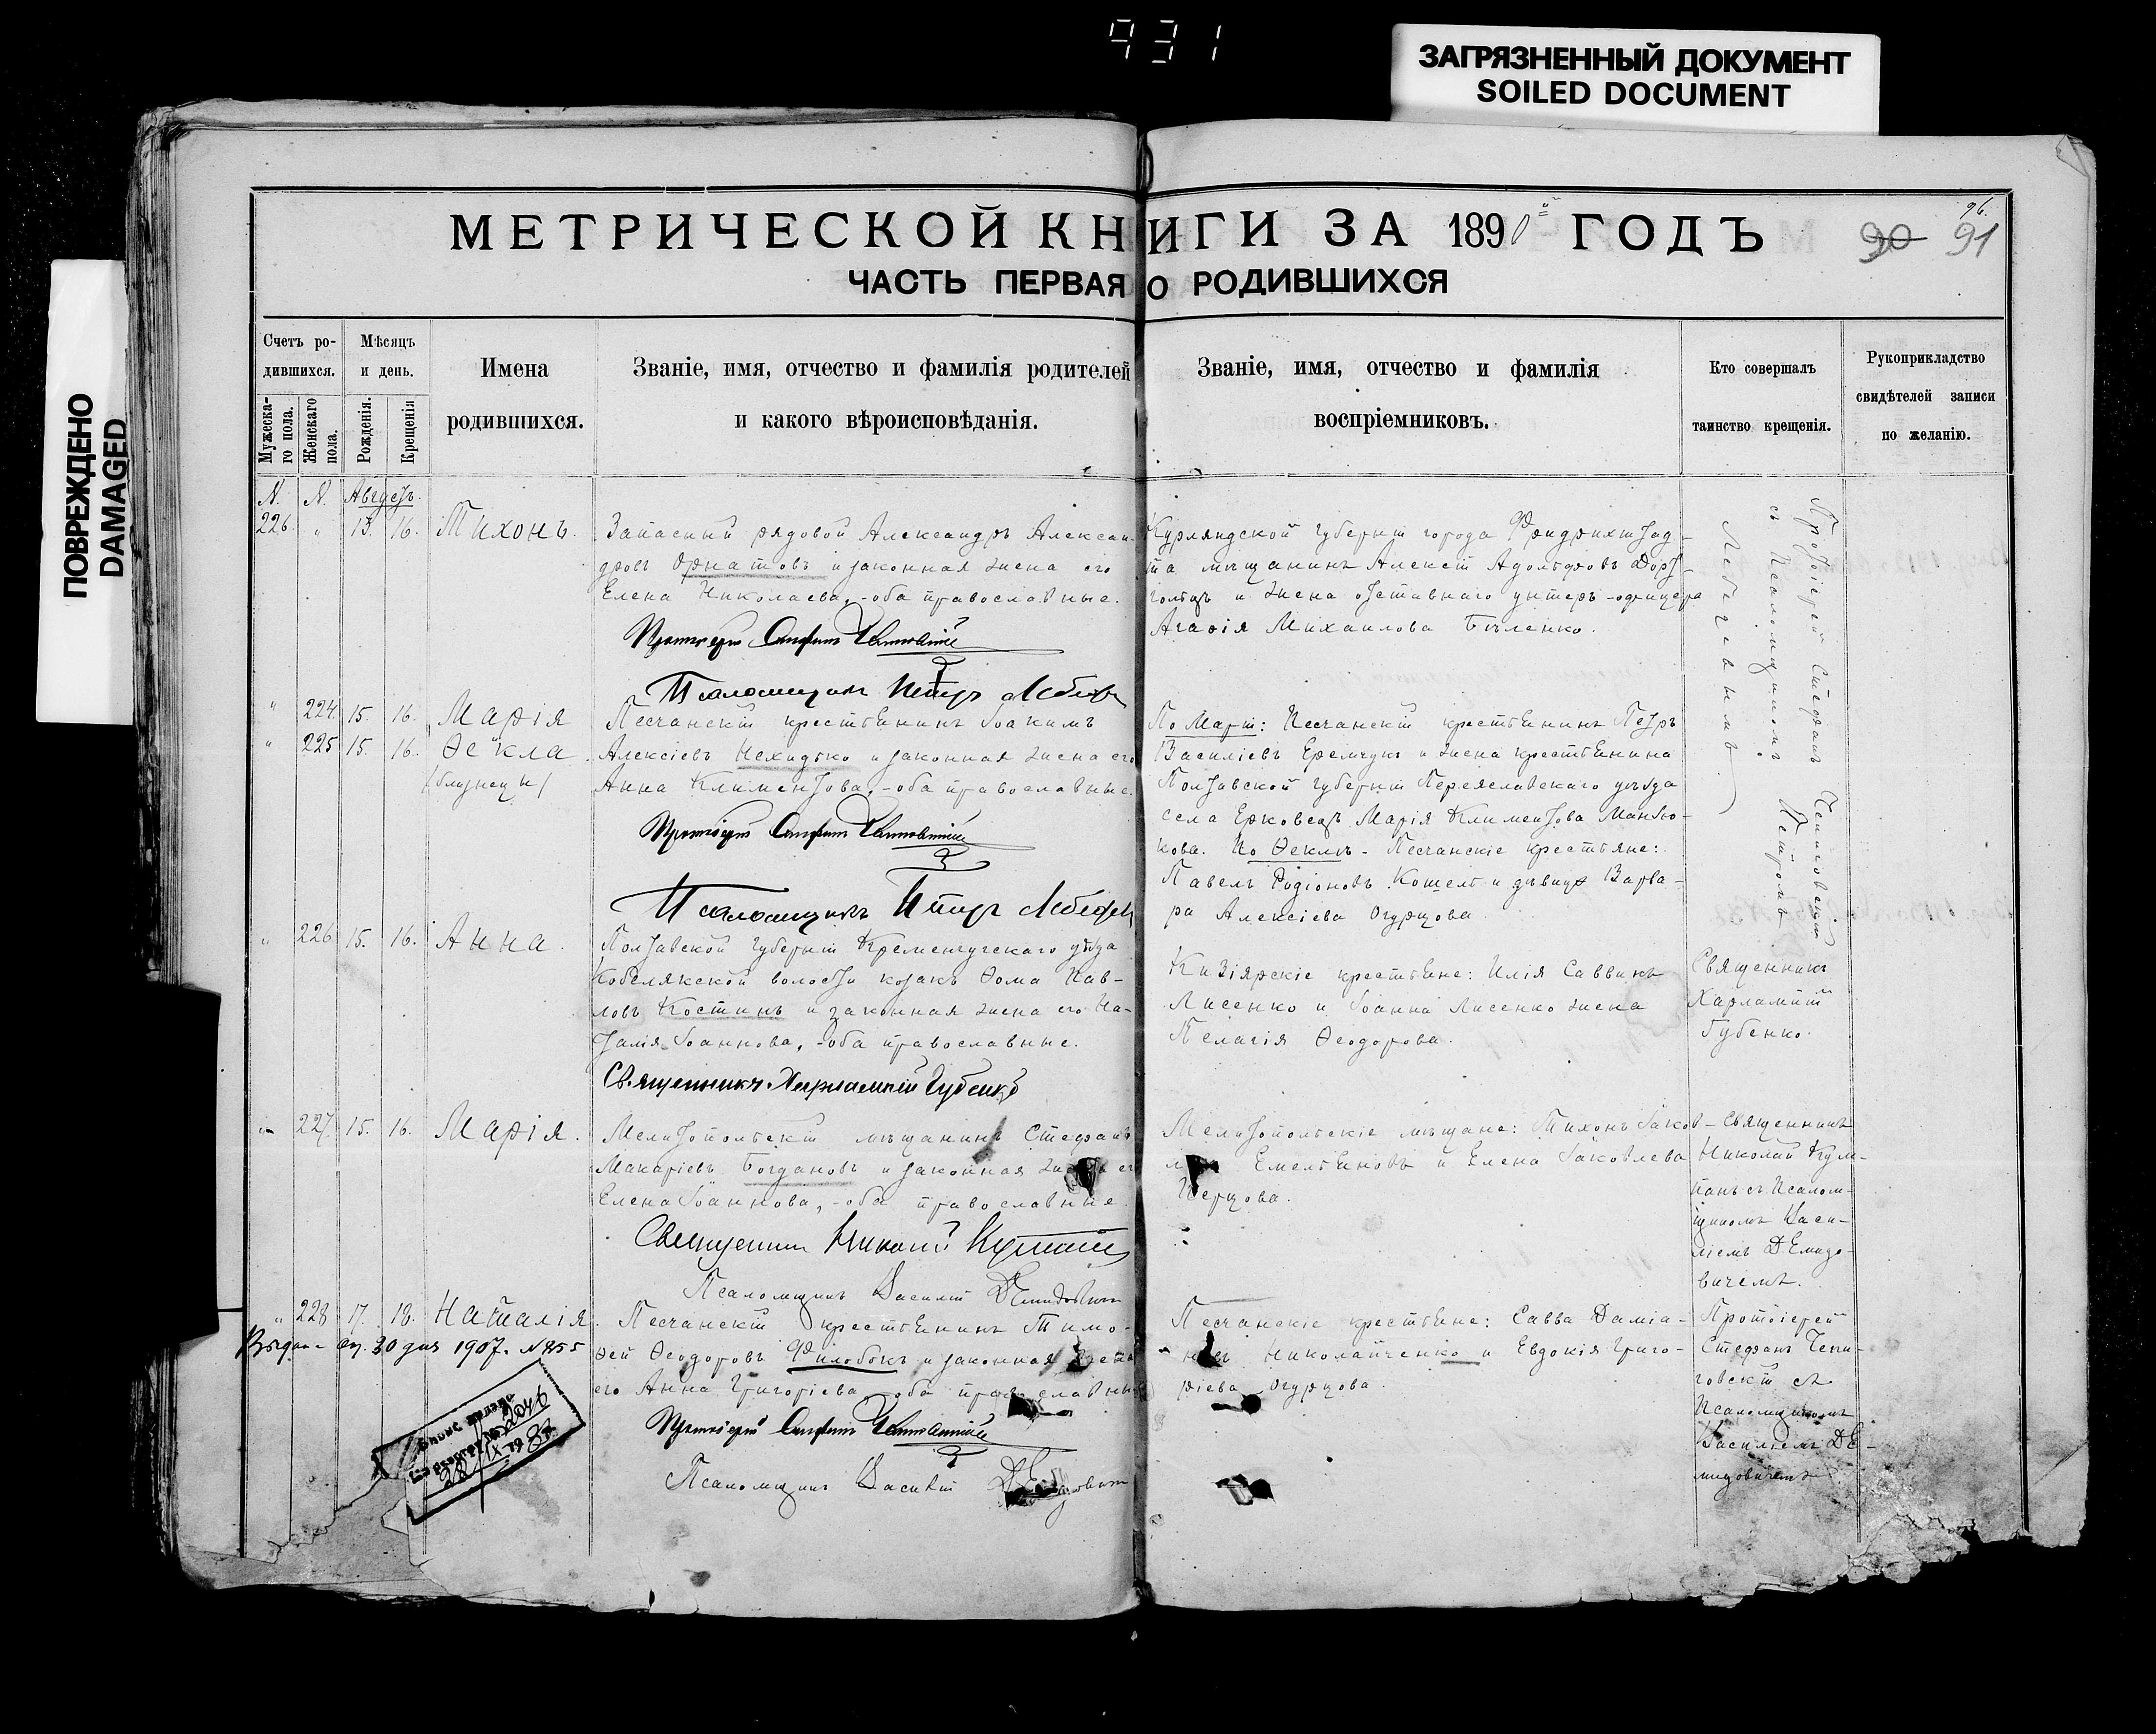 931
ЗАГРЯЗНЕННЫЙ ДОКУМЕНТ
SOILED DOCUMENT
ПОВРЕЖДЕНО
DAMAGED
МЕТРИЧЕСКОЙ КНИГИ ЗА 1890й ГОДЪ
96.
90 91
ЧАСТЬ ПЕРВАЯ О РОДИВШИХСЯ
Счетъ ро-
дившихся.
Мужеска-
го пола.
Женскаго
пола.
Мѣсяцъ
и день.
Рожденія.
Крещенія
Имена
родившихся.
Званіе, имя, отчество и фамилія родителей
и какого вѣроисповѣданія.
Званіе, имя, отчество и фамилія
воспріемниковъ.
Кто совершалъ
таинство крещенія.
Рукоприкладство
свидѣтелей записи
по желанію.
N. N. Августъ.
226. " 13. 16. Тихонъ.
Запасный рядовой Александръ Алексан-
дровъ Орнатовъ и законная жена его
Елена Николаева, - оба православные.
Протоіерей Стефанъ
Псаломщикъ Петръ
Курляндской губерніи города Фридрихштад-
та мѣщанинъ Алексѣй Адольфовъ
и жена отставнаго унтеръ-офицера
Агафія Михаилова Бѣленко.
Протоіерей Стефанъ Чепиговскій
съ Псаломщикомъ Петромъ
" 224 15. 16. Марія
" 225 15. 16. Ѳекла
/близнецы/
Песчанскій крестьянинъ Іоакимъ
Алексіевъ Нехидько и законная жена его
Анна Климентова, - оба православные.
Протоіерей Стефанъ
Псаломщикъ Петръ
По Маріи: Песчанскій крестьянинъ Петръ
Василіевъ Еремчукъ и жена крестьянина
Полтавской губерніи Переяславскаго уѣзда
села Ерковецъ Марія Климентова Манью-
кова. По Ѳеклѣ - Песчанскіе крестьяне:
Павелъ Родіоновъ Кошель и дѣвица Варва-
ра Алексіева Огурцова.
" 226 15. 16. Анна.
Полтавской губерніи Кременчугскаго уѣзда
Кобелякской волости козакъ Ѳома Пав-
ловъ Костинъ и законная жена его На-
талія Іоаннова, - оба православные.
Священникъ Харлампій Губенко
Кизіярскіе крестьяне: Илія Саввинъ
Лисенко и Іоанна Лисенко жена
Пелагія Ѳеодорова.
Священникъ
Харлампій
Губенко.
" 227. 15. 16. Марія.
Мелитопольскій мѣщанинъ Стефанъ
Макаріевъ Богдановъ и законная жена его
Елена Іоаннова, - оба православные.
Священникъ Николай
Псаломщикъ Василій Демидовичъ
Мелитопольскіе мѣщане: Тихонъ Іаков-
Емельяновъ и Елена Іаковлева
Перцова.
Священникъ
Николай Кул-
панъ съ Псалом-
щикомъ Васи-
ліемъ Демидо-
вичемъ.
" 228 17. 18. Наталія.
Песчанскій крестьянинъ Тимо-
ѳей Ѳеодоровъ Филобокъ и законная жена
его Анна Григоріева, оба православные
Протоіерей Стефанъ
Псаломщикъ Василій Демидовичъ
Песчанскіе крестьяне: Савва Даміа-
новъ Николайченко и Евдокія Григо-
ріева Огурцова.
Протоіерей
Стефанъ Чепи-
говскій съ
Псаломщикомъ
Василіемъ Де-
мидовичемъ
1907. N 855